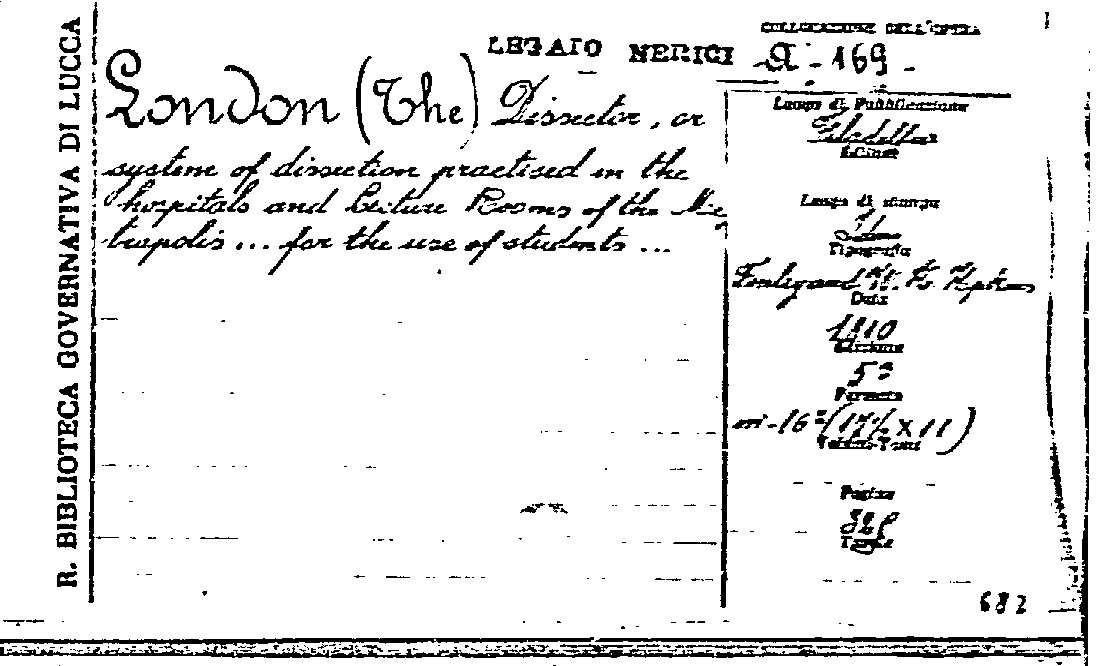 R. BIBLIOTECA GOVERNATIVA DI LUCCA
LEGATO NERICI
COLLOCAZIONE DELL'OPERA
A - 169 -
London (The) Dissector, or
system of dissection practised in the
hospitals and Lecture Rooms of the Me
tropolis ... for the use of students ...
Luogo di Pubblicazione
Filadelfia
Luogo di stampa
Tipografia
Data
1810
Edizione
5ª
Formato
in-16º (17½ X 11)
Pagine
328
Tavole
682